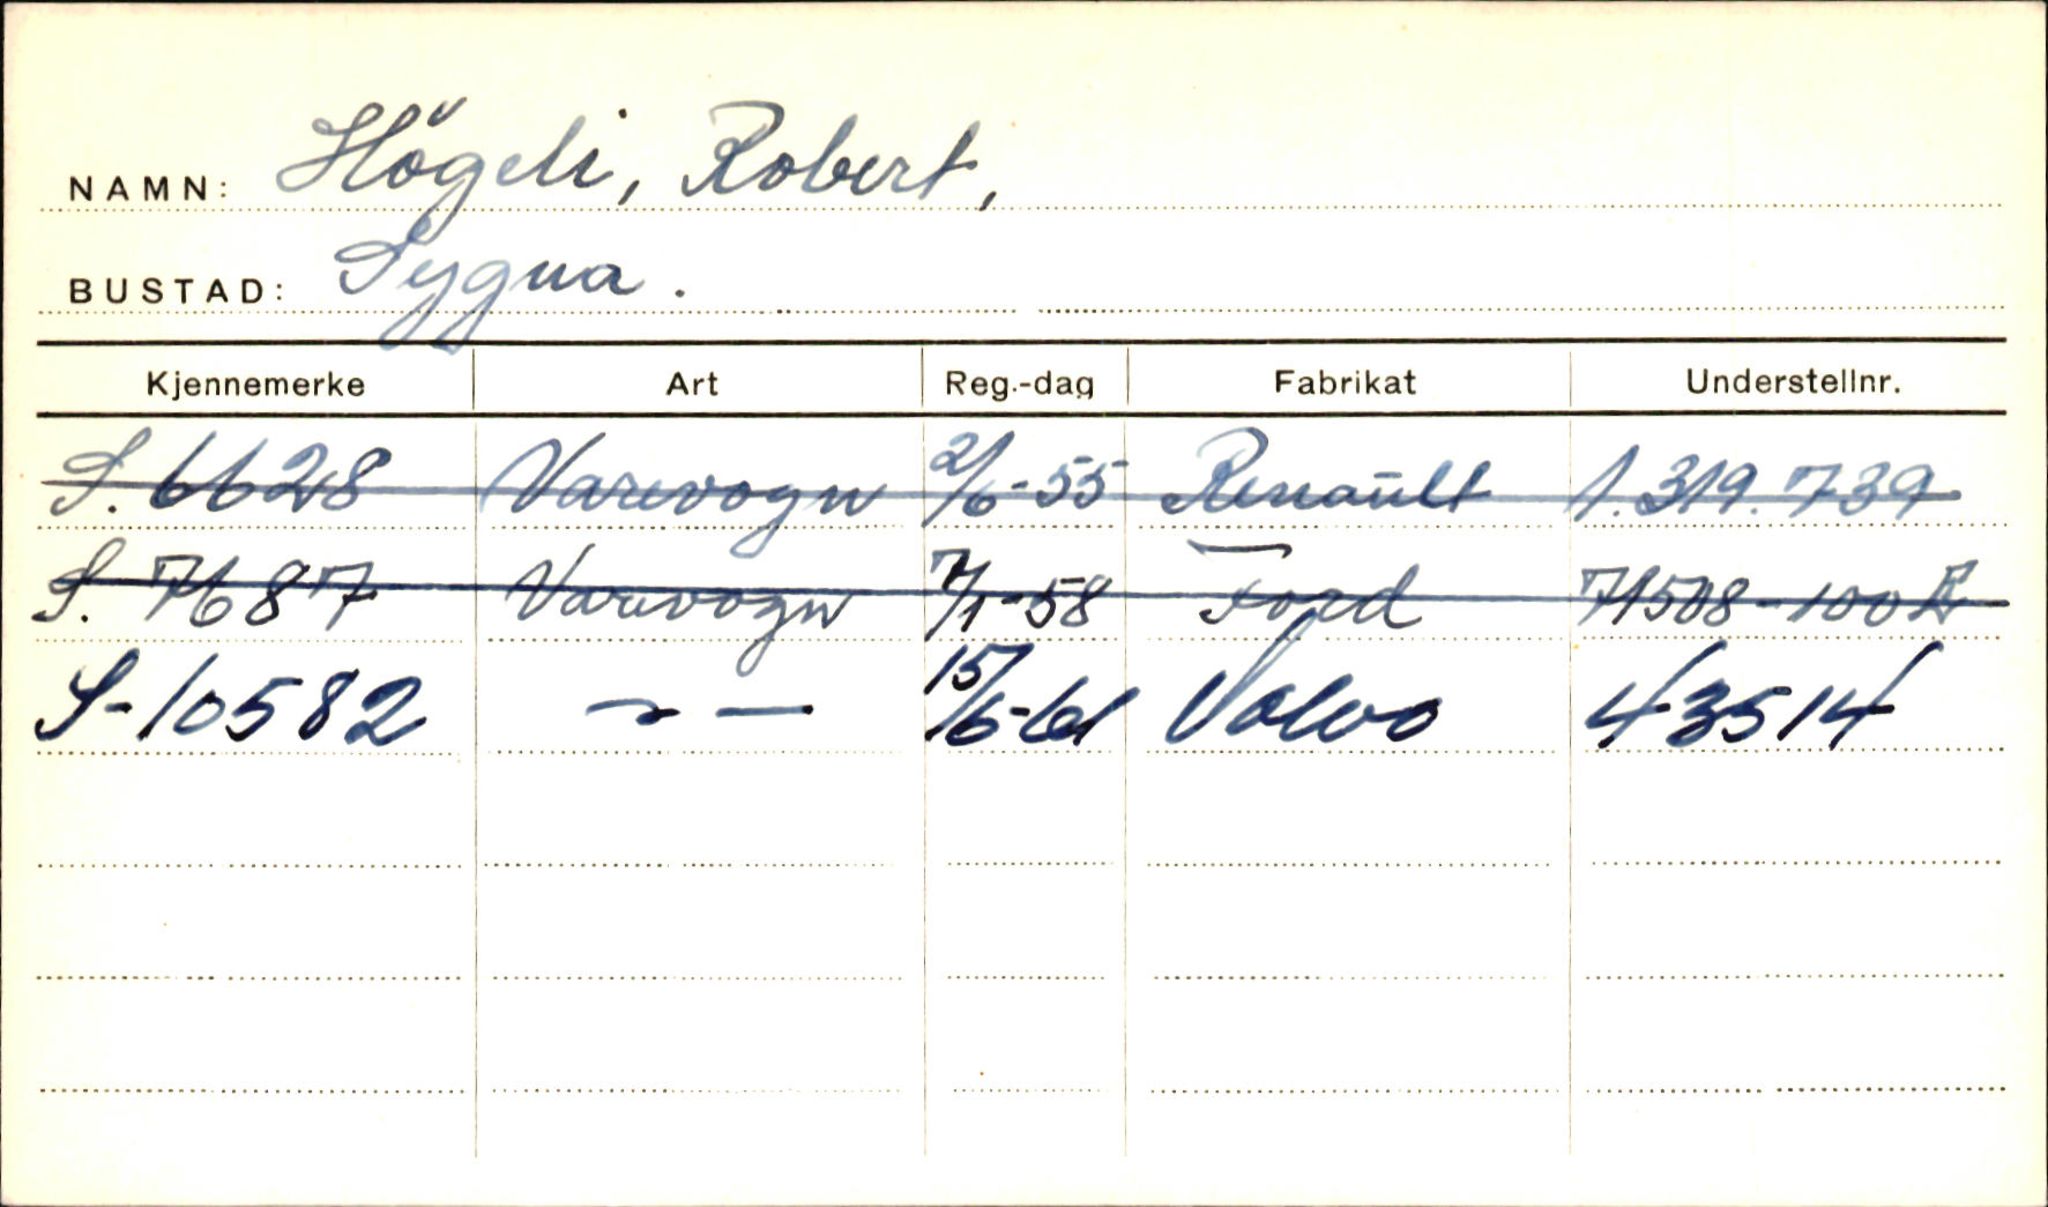 NAMN: Högeli, Robert,
BUSTAD: Sygna.
Kjennemerke Art Reg.-dag Fabrikat Understellnr.
S. 6628 Varevogn 2/6-55 Renault 1.319.739
S. 7687 Varevogn 7/1-58 Ford 71508-100E
S-10582 ~ — 15/6-61 Volvo 43514